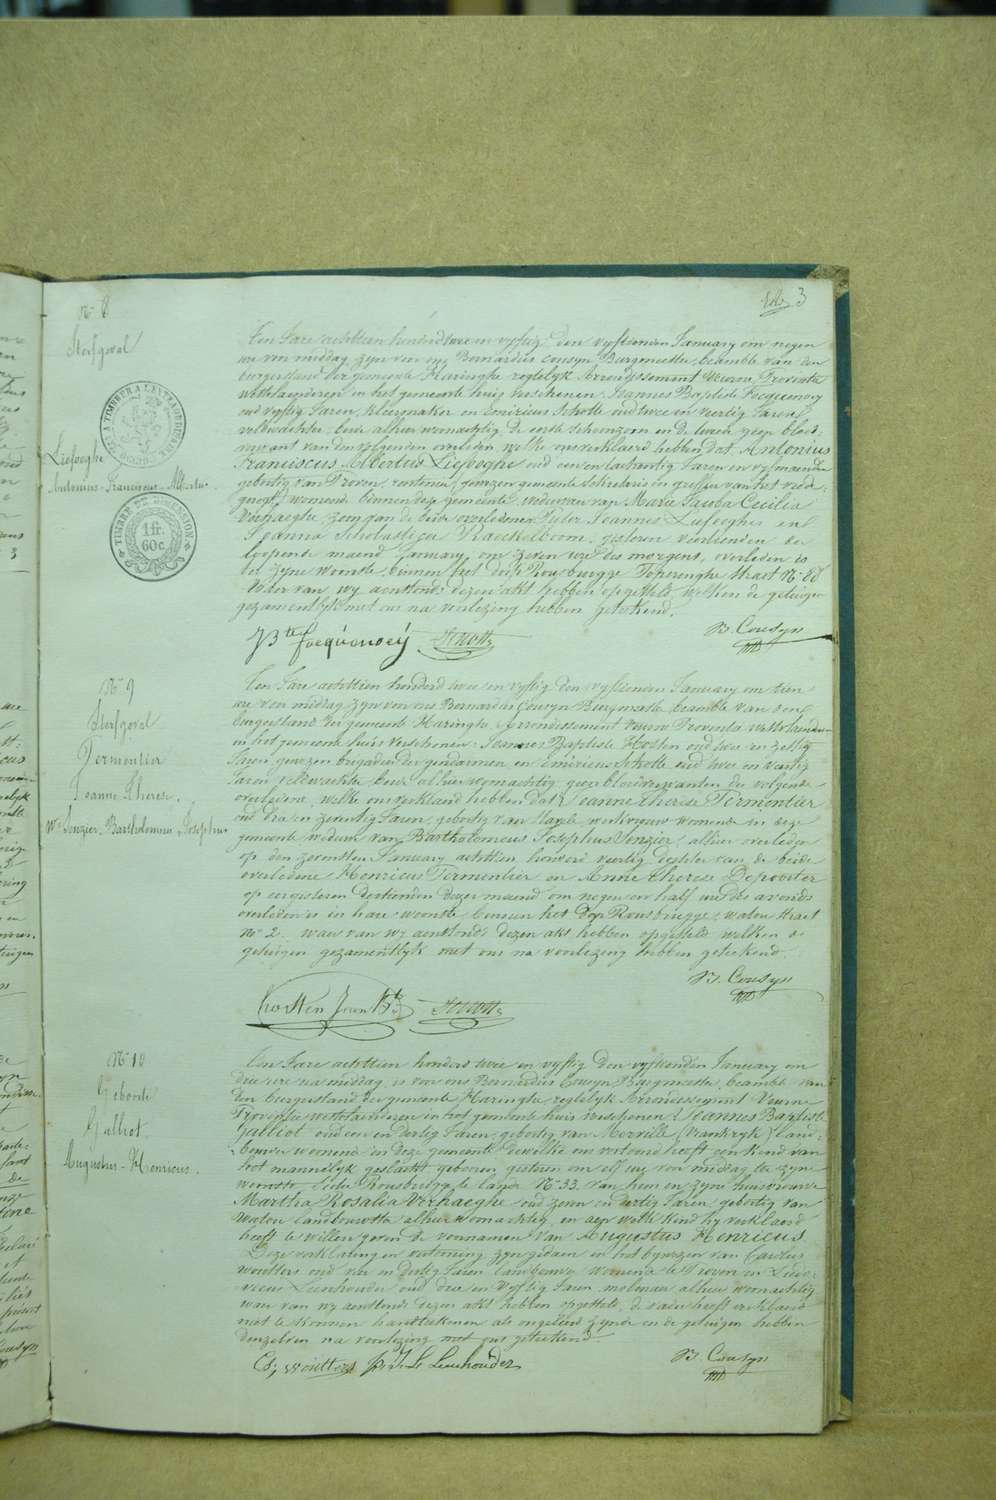 3
N° 8
Sterfgeval
Liefooghe
Antonius Franciscus Albertus
TIMBRE DE DIMENSION
1 fr.
60 c.
Een Jare achttien honderd twee en vyftig den vyftienden January om negen
ure voor middag zyn voor ons Bernardus Cousyn Burgmeester, beambte van den
burgerstand der gemeente Haringhe regtelyk Arrondissement Veurne Provintie
Westvlaenderen in het gemeente huis verschenen Joannes Baptiste Focquenoey
oud vyftig Jaren, kleermaker en Emiricus Schotte oud twee en veertig Jaren
veldwachter, beide alhier woonachtig de eerste schoonzoon en de tweede geen bloed-
verwant van den volgenden overleden welke ons verklaerd hebben dat Antonius
Franciscus Albertus Liefooghe oud een en tachentig Jaren en vyf maenden
geboortig van Proven, rentenier, gewezen gemeente Schrederis en greffier van het vrede-
geregt, woonende binnen deze gemeente, weduwaer van Marie Jacoba Cecilia
Verhaeghe, zoon van de beide overledenen Pieter Joannes Liefooghe en
Joanna Scholastica Raeckelboom, gisteren veertienden der
loopende maend January, om zeven ure des morgens, overleden is
in zyne woonste, binnen het dorp Rousbrugge Poperinghe straet N°
Waer van wy aenstonds dezen akt hebben opgesteld welken de getuigen
gezamentlyk met ons na voorlezing hebben geteekend.
JBte focquenoey Schotte B. Cousyn
N° 9
Sterfgeval
Termentier
Joanne Therese.
We Senzier Bartholomeus Josephus
Een Jare achttien honderd twee en vyftig den vyftienden January om tien
ure voor middag zyn voor ons Bernardus Cousyn Burgmeester beambte van den
burgerstand der gemeente Haringhe Arrondissement Veurne Provintie Westvlaenderen
in het gemeente huis verschenen Joannes Baptiste Hosten oud twee en zestig
Jaren gewezen brigadier der gendarmen en Emiricus Schotte oud twee en veertig
Jaren veldwachter beide alhier woonachtig geen bloedverwanten der volgende
overledene, welke ons verklaerd hebben dat Jeanne therese Termentier
oud dry en zeventig Jaren, geboortig van werkvrouw woonende in deze
gemeente weduwe van Bartholomeus Josephus Senzier, alhier overleden
op den zeventien January achttien honderd veertig dochter van de beide
overledene Henricus Termentier en Anne therese Depoorter
op eergisteren dertienden dezer maend om negen en half ure des avonds
overleden is in hare woonste binnen het dorp Rousbrugge, waton straet
N° 2. waer van wy aenstonds dezen akt hebben opgesteld welken de
getuigen gezamentlyk met ons na voorlezing hebben geteekend.
B. Cousyn
hosten Jean Bte Schotte
N° 10
Geboorte
Galliot
Augustus-Henricus.
Een Jare achttien honderd twee en vyftig den vyftienden January om
drie ure na middag, is voor ons Bernardus Cousyn Burgmeester, beambte van
den burgerstand der gemeente Haringhe regtelyk Arrondissement Veurne
Provintie Westvlaenderen in het gemeente huis verschenen Joannes Baptiste
Galliot oud een en dertig Jaren, geboortig van Merville (Vrankryk) land-
bouwer woonende in deze gemeente dewelke ons vertoond heeft een kind van
het mannelyk geslacht geboren gisteren om elf ure voor middag in zyne
woonste Rousbrugge te laeyde N° 33. van hem en zyne huisvrouwe
Martha Rosalia Verhaeghe oud zeven en dertig Jaren, geboortig van
Waton landbouwster alhier woonachtig, en aen welk kind hy verklaerd
heeft te willen geven de voornamen van Augustus Henricus
Deze verklaring en vertooning zyn gedaen in het bywezen van Carolus
Woutters oud vier en dertig Jaren landbouwer woonende te Proven en Ludo-
vicus Leenhouder oud drie en vyftig Jaren molenaer alhier woonachtig
waer van wy aenstonds dezen akt hebben opgesteld, de vader heeft verklaerd
niet te konnen handteekenen als ongeleerd zynde en de getuigen hebben
denzelven na voorlezing met ons geteekend
Cs, woutters L Leenhouder B. Cousyn